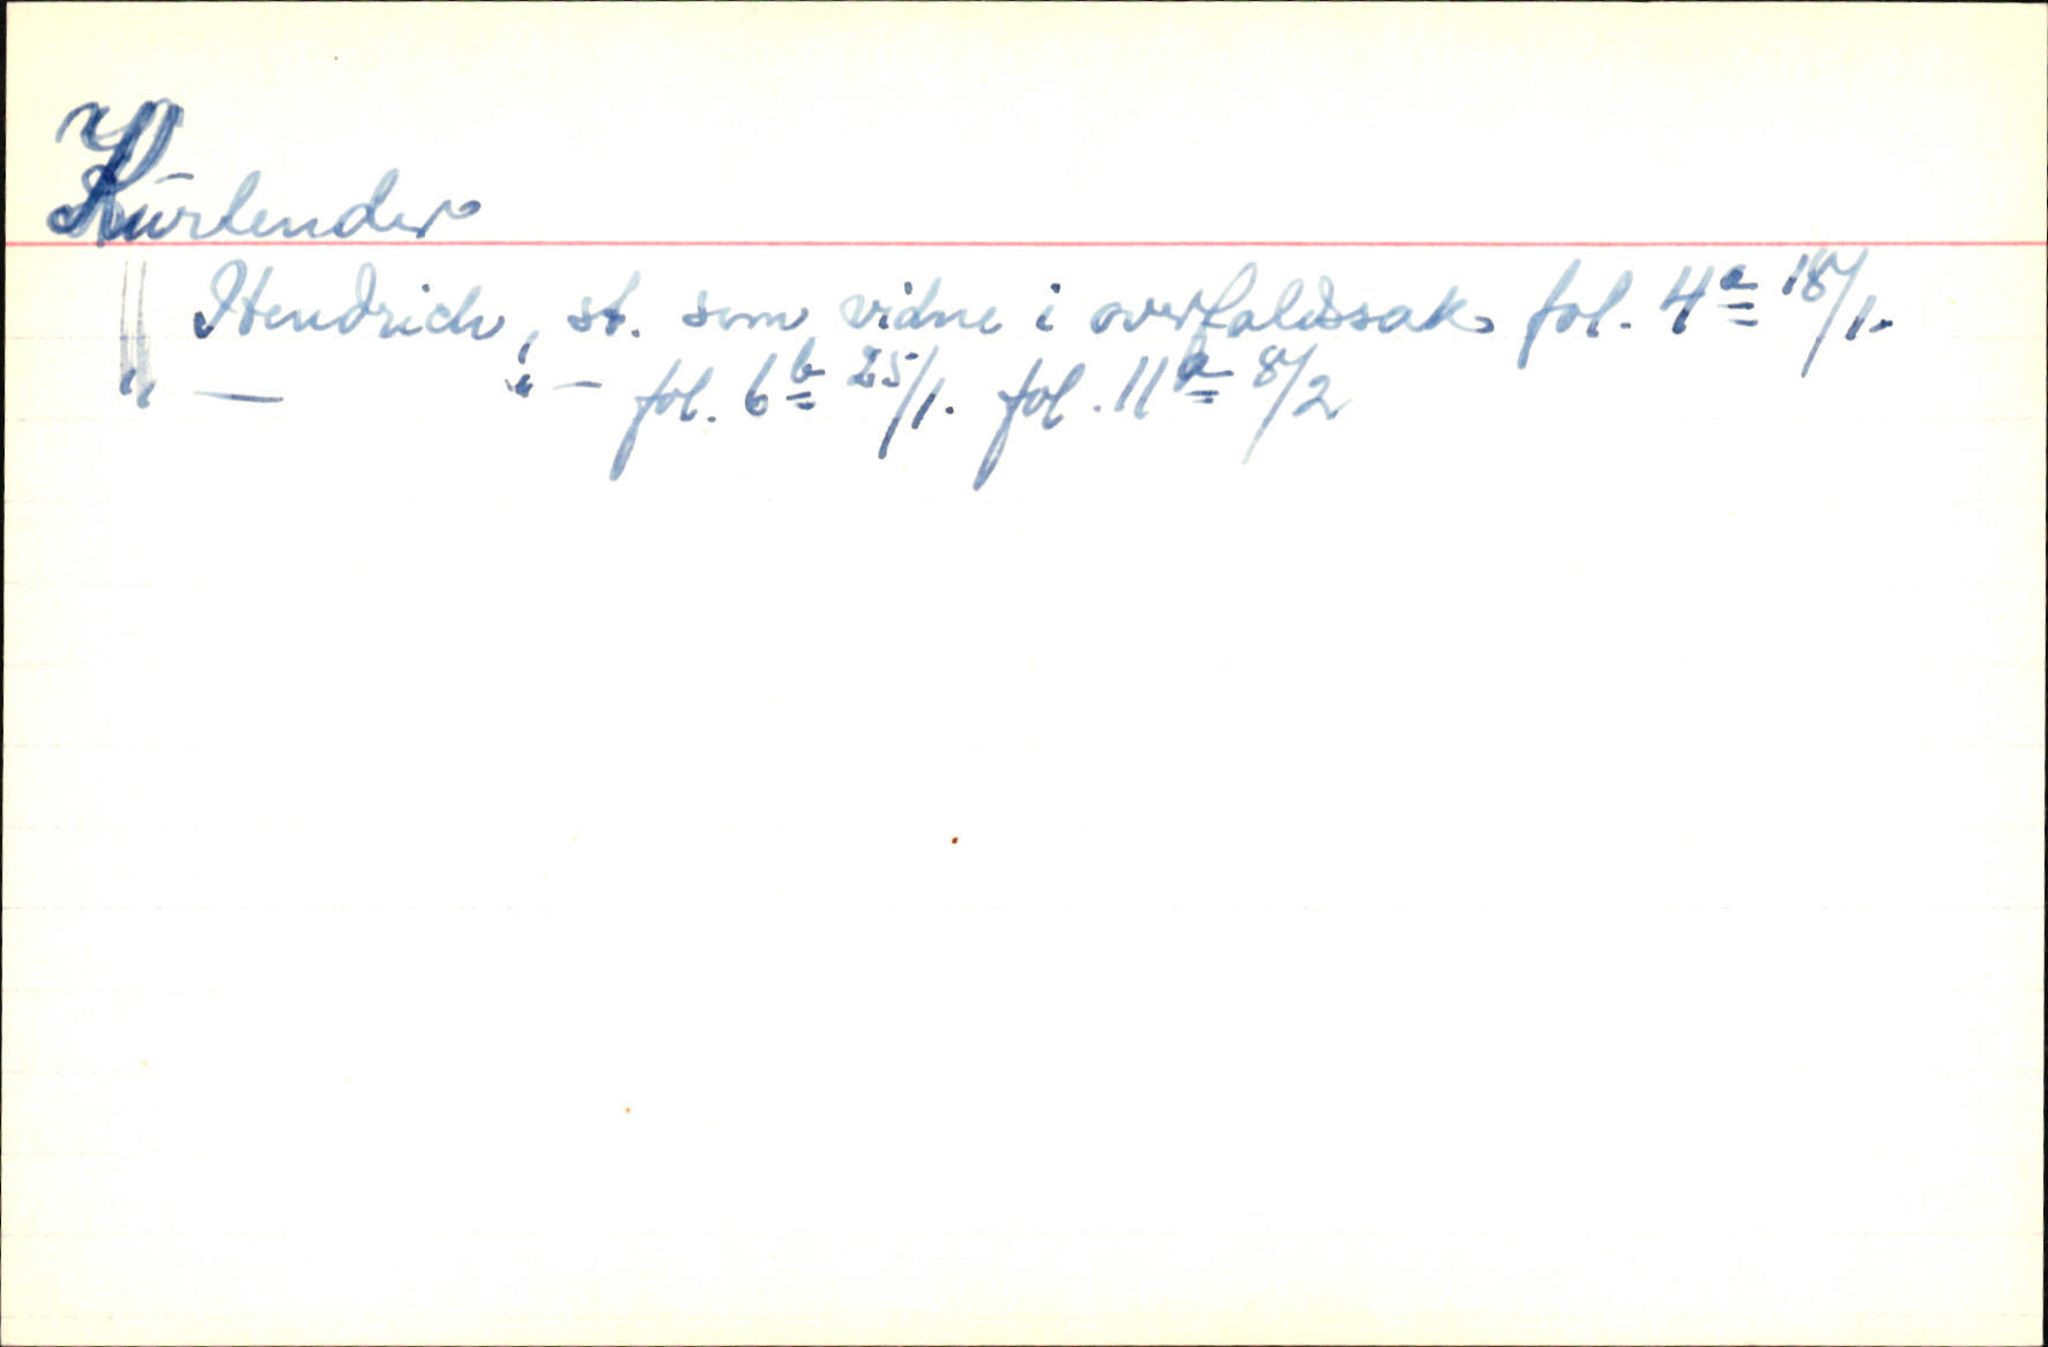 Kürlender
Hendrich, st. som vidne i overfaldssak fol. 4a 18/1.
" — " — fol. 6b 25/1. fol. 11a 8/2